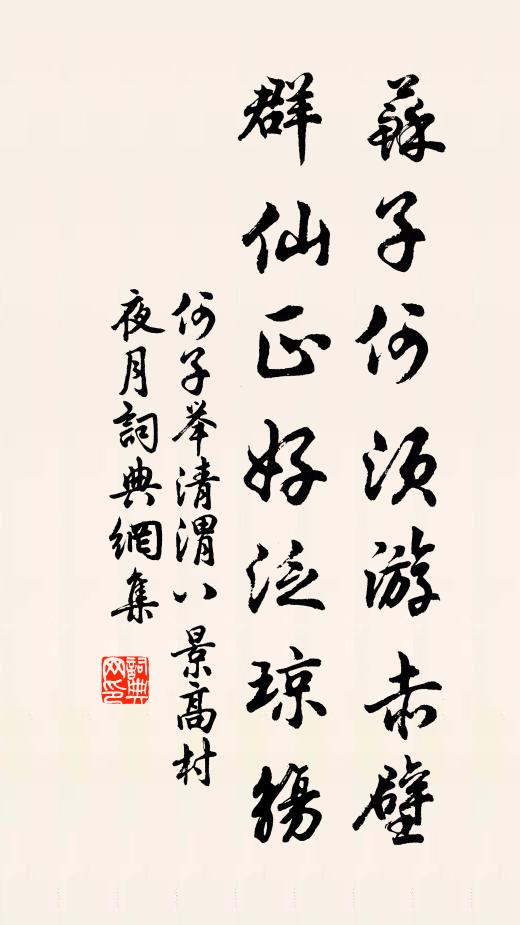 蘇子何須游赤壁
群仙正好泛琼觴
何子举清渭八景高村
夜月詞典網集
詞典网印